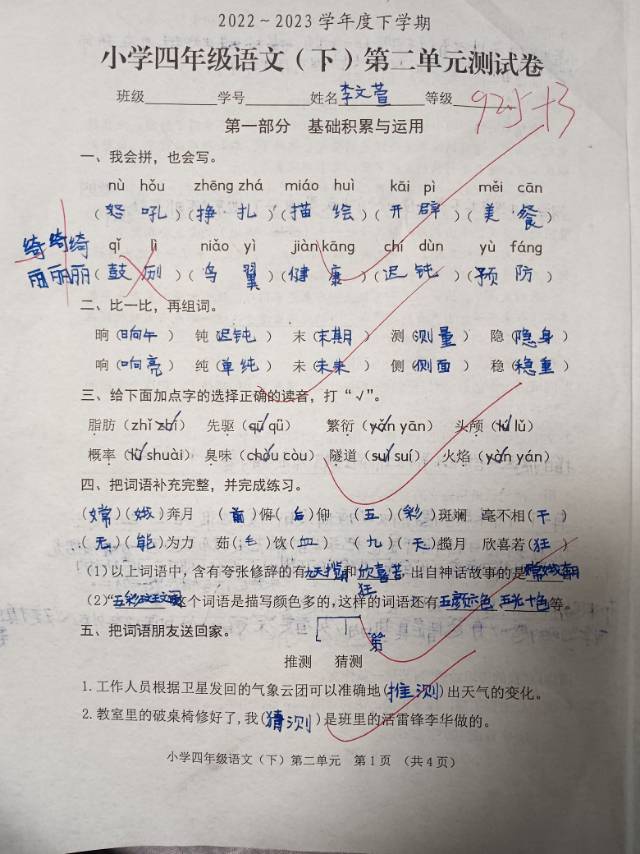 2022～2023学年度下学期
小学四年级语文（下）第二单元测试卷
班级 学号 姓名 李文萱 等级 92.5+3
第一部分 基础积累与运用
一、我会拼，也会写。
nù hǒu zhēng zhá miáo huì kāi pì měi cān
（怒吼）（挣扎）（描绘）（开辟）（美餐）
绮绮绮 qǐ lì niǎo yì jiàn kāng chí dùn yù fáng
丽丽丽（鼓励）（鸟翼）（健康）（迟钝）（预防）
二、比一比，再组词。
晌（晌午） 钝（迟钝） 末（末期） 测（测量） 隐（隐身）
响（响亮） 纯（单纯） 未（未来） 侧（侧面） 稳（稳重）
三、给下面加点字的选择正确的读音，打“√”。
脂肪（zhǐ zhī） 先驱（qū qǖ） 繁衍（yǎn yān） 头颅（lú lǔ）
概率（lǜ shuài） 臭味（chòu còu） 隧道（suì suí） 火焰（yàn yán）
四、把词语补充完整，并完成练习。
（嫦）（娥）奔月 （前）俯（后）仰 （五）（彩）斑斓 毫不相（干）
（无）（能）为力 茹（毛）饮（血） （九）（天）揽月 欣喜若（狂）
（1）以上词语中，含有夸张修辞的有九天揽月和欣喜若狂 出自神话故事的是嫦娥奔月
（2）“五彩斑斓”这个词语是描写颜色多的，这样的词语还有五颜六色 五光十色等。
五、把词语朋友送回家。
推测 猜测
1.工作人员根据卫星发回的气象云团可以准确地（推测）出天气的变化。
2.教室里的破桌椅修好了，我（猜测）是班里的活雷锋李华做的。
小学四年级语文（下）第二单元 第1页 （共4页）